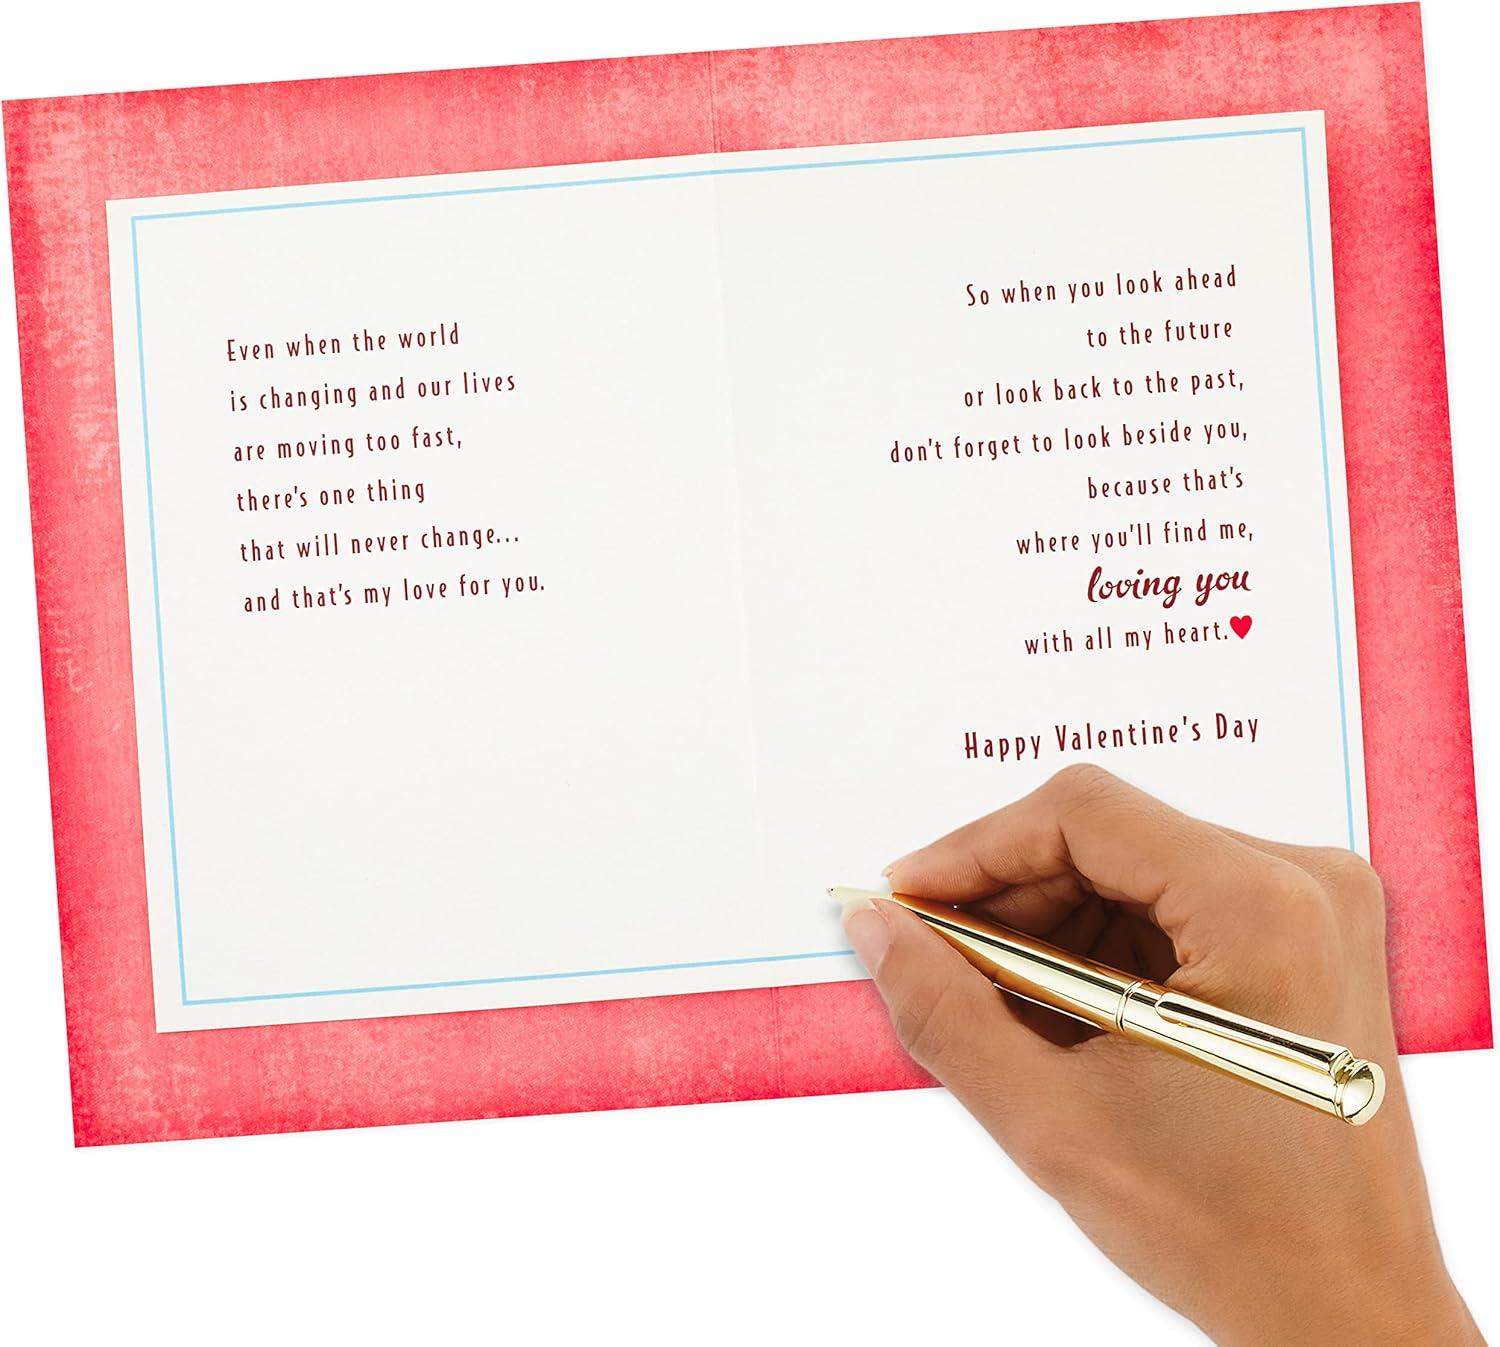 Even when the world
is changing and our lives
are moving too fast,
there's one thing
that will never change...
and that's my love for you.
So when you look ahead
to the future
or look back to the past,
don't forget to look beside you,
because that's
where you'll find me,
loving you
with all my heart.
Happy Valentine's Day